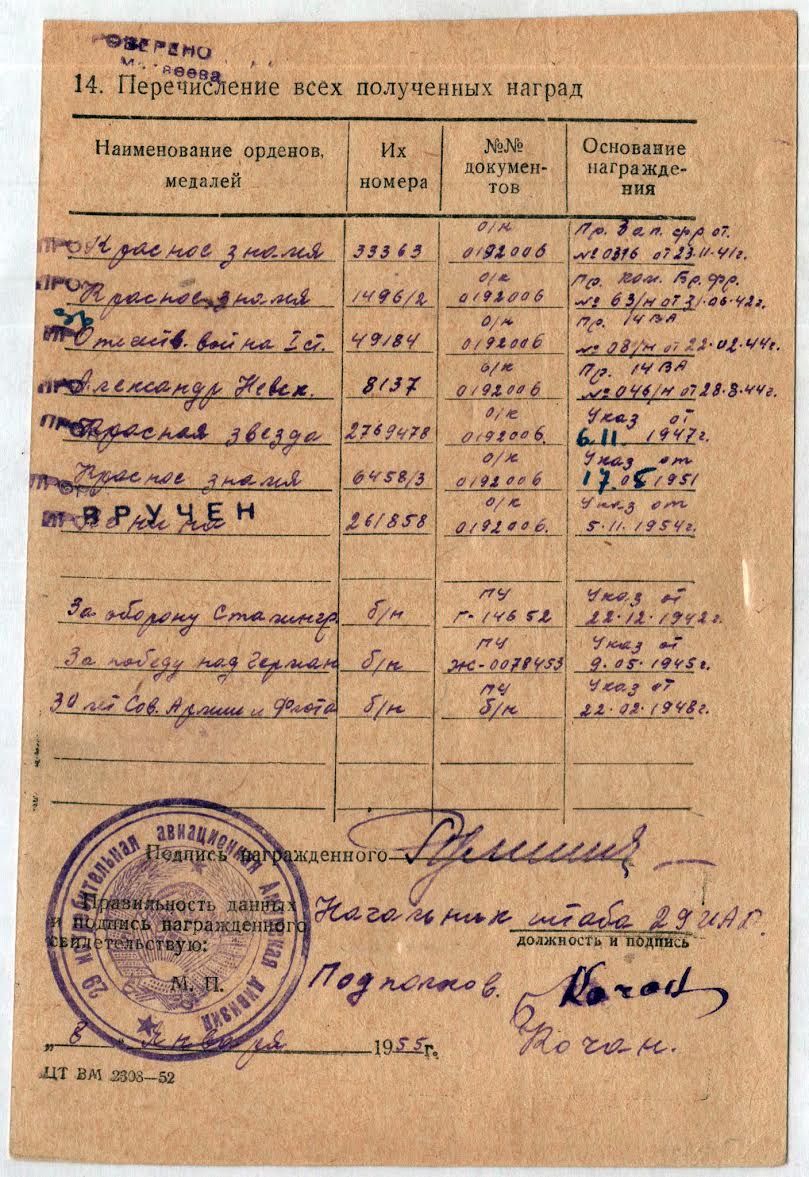 ПРОВЕРЕНО
14. Перечисление всех полученных наград
Наименование орденов, медалей
Их номера
№№ докумен-тов
Основание награжде-ния
о/к Пр. Зап. фр. от.
Красное знамя 33363 0192006 № 0316 от 23.11.41г.
о/к Пр. Ком. Бр. фр.
Красное знамя 1496/2 0192006 № 63/н от 21.06.42г.
о/к Пр. 14 ВА
Отечеств. война I ст. 49184 0192006 № 08/н от 22.02.44г.
о/к Пр. 14 ВА
Александр Невск. 8137 0192006 № 046/н от 28.8.44г.
о/к Указ от
Красная звезда 2769478 0192006. 6.11. 1947г.
о/к Указ от
Красное знамя 6458/3 0192006 17.05 1951
о/к Указ от
ВРУЧЕН
Ленина 261858 0192006. 5.11.1954г.
ПУ Указ от
За оборону Сталингр. б/н Г-14652 22.12.1942г.
ПУ Указ от
За победу над Герман б/н Ж-0078453 9.05.1945г.
ПУ Указ от
30 лет Сов. Армии и Флота б/н б/н 22.02.1948г.
Подпись награжденного
Правильность данных
и подпись награжденного
свидетельствую:
Начальник штаба 29 ИАД.
должность и подпись
М. П.
Подполков. Кочан
Кочан.
„ 8 " Января 1955г.
29 истребительная авиационная Амурская дивизия
ЦТ ВМ 2308—52